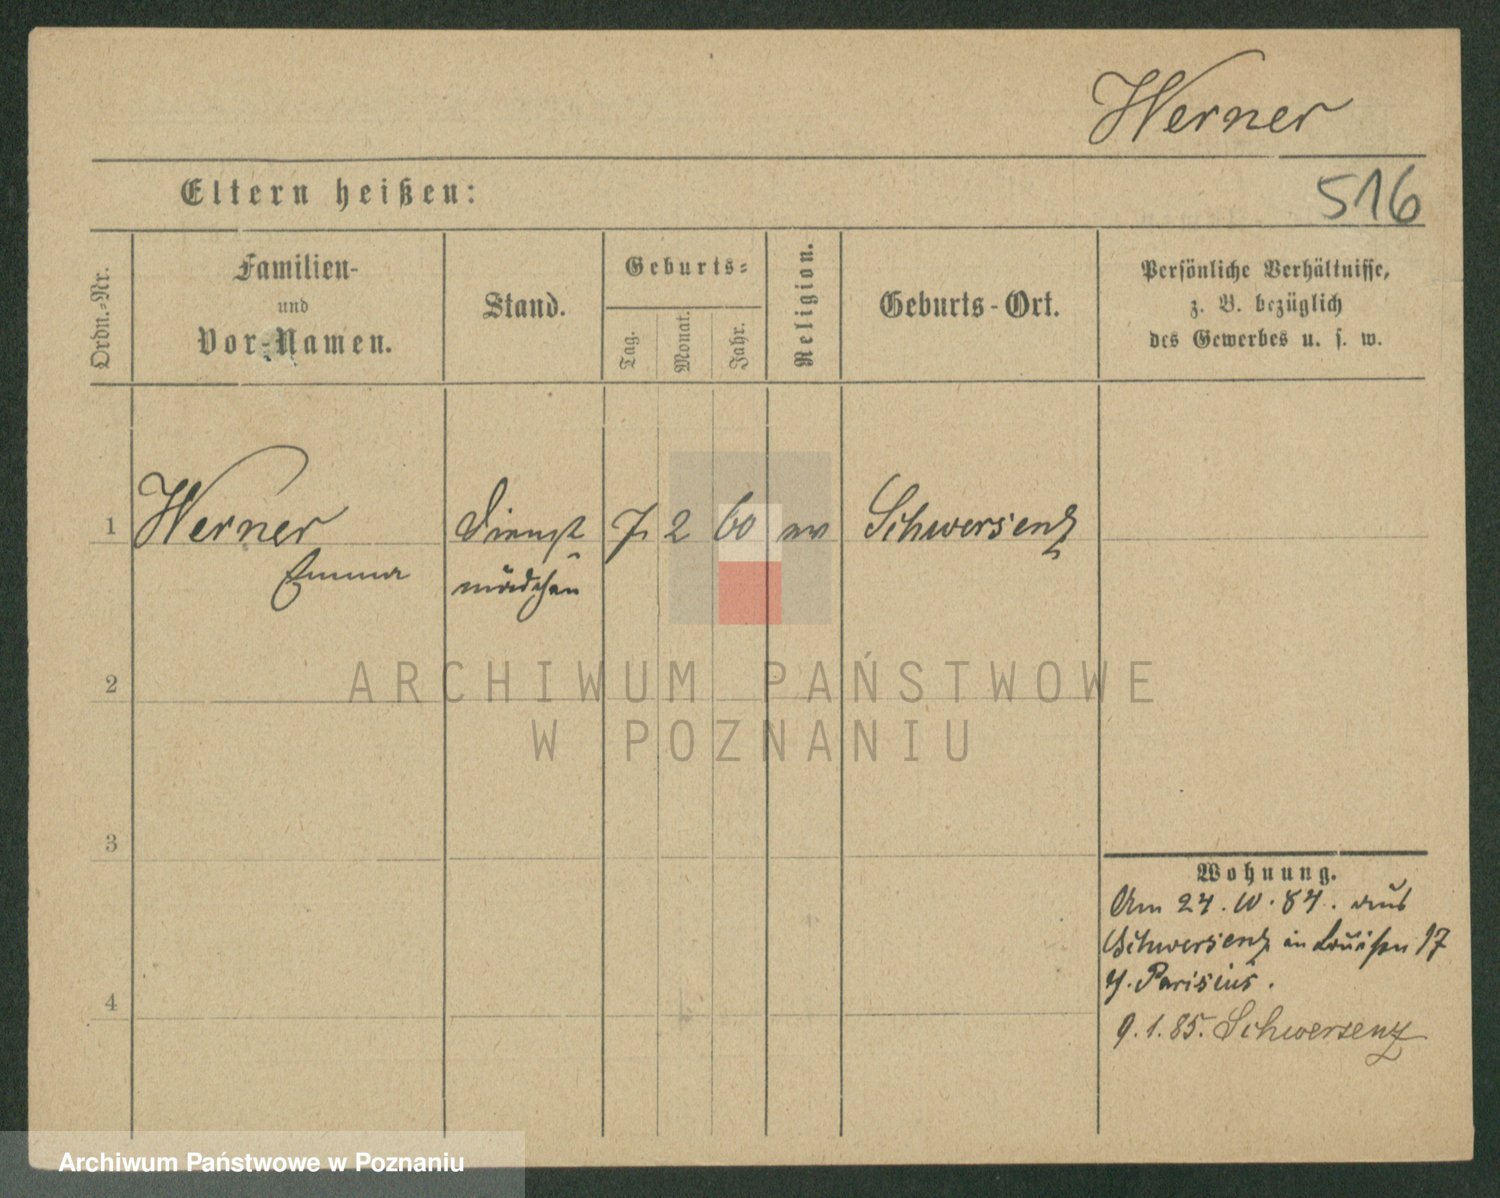 Werner
Eltern heißen:
516
Ordn.-Nr.
Familien-
und
Vor-Namen.
Stand.
Geburts-
Tag.
Monat.
Jahr.
Religion.
Geburts-Ort.
Persönliche Verhältnisse,
z. B. bezüglich
des Gewerbes u. s. w.
1
Werner
Emma
Dienst
mädchen
7 2 60 ev Schwersenz
2
ARCHIWUM PAŃSTWOWE
W POZNANIU
3
Wohnung.
Am 24. 10. 84. aus
Schwersenz in Louisen 17
Parisius.
4
9. 1. 85. Schwersenz
Archiwum Państwowe w Poznaniu